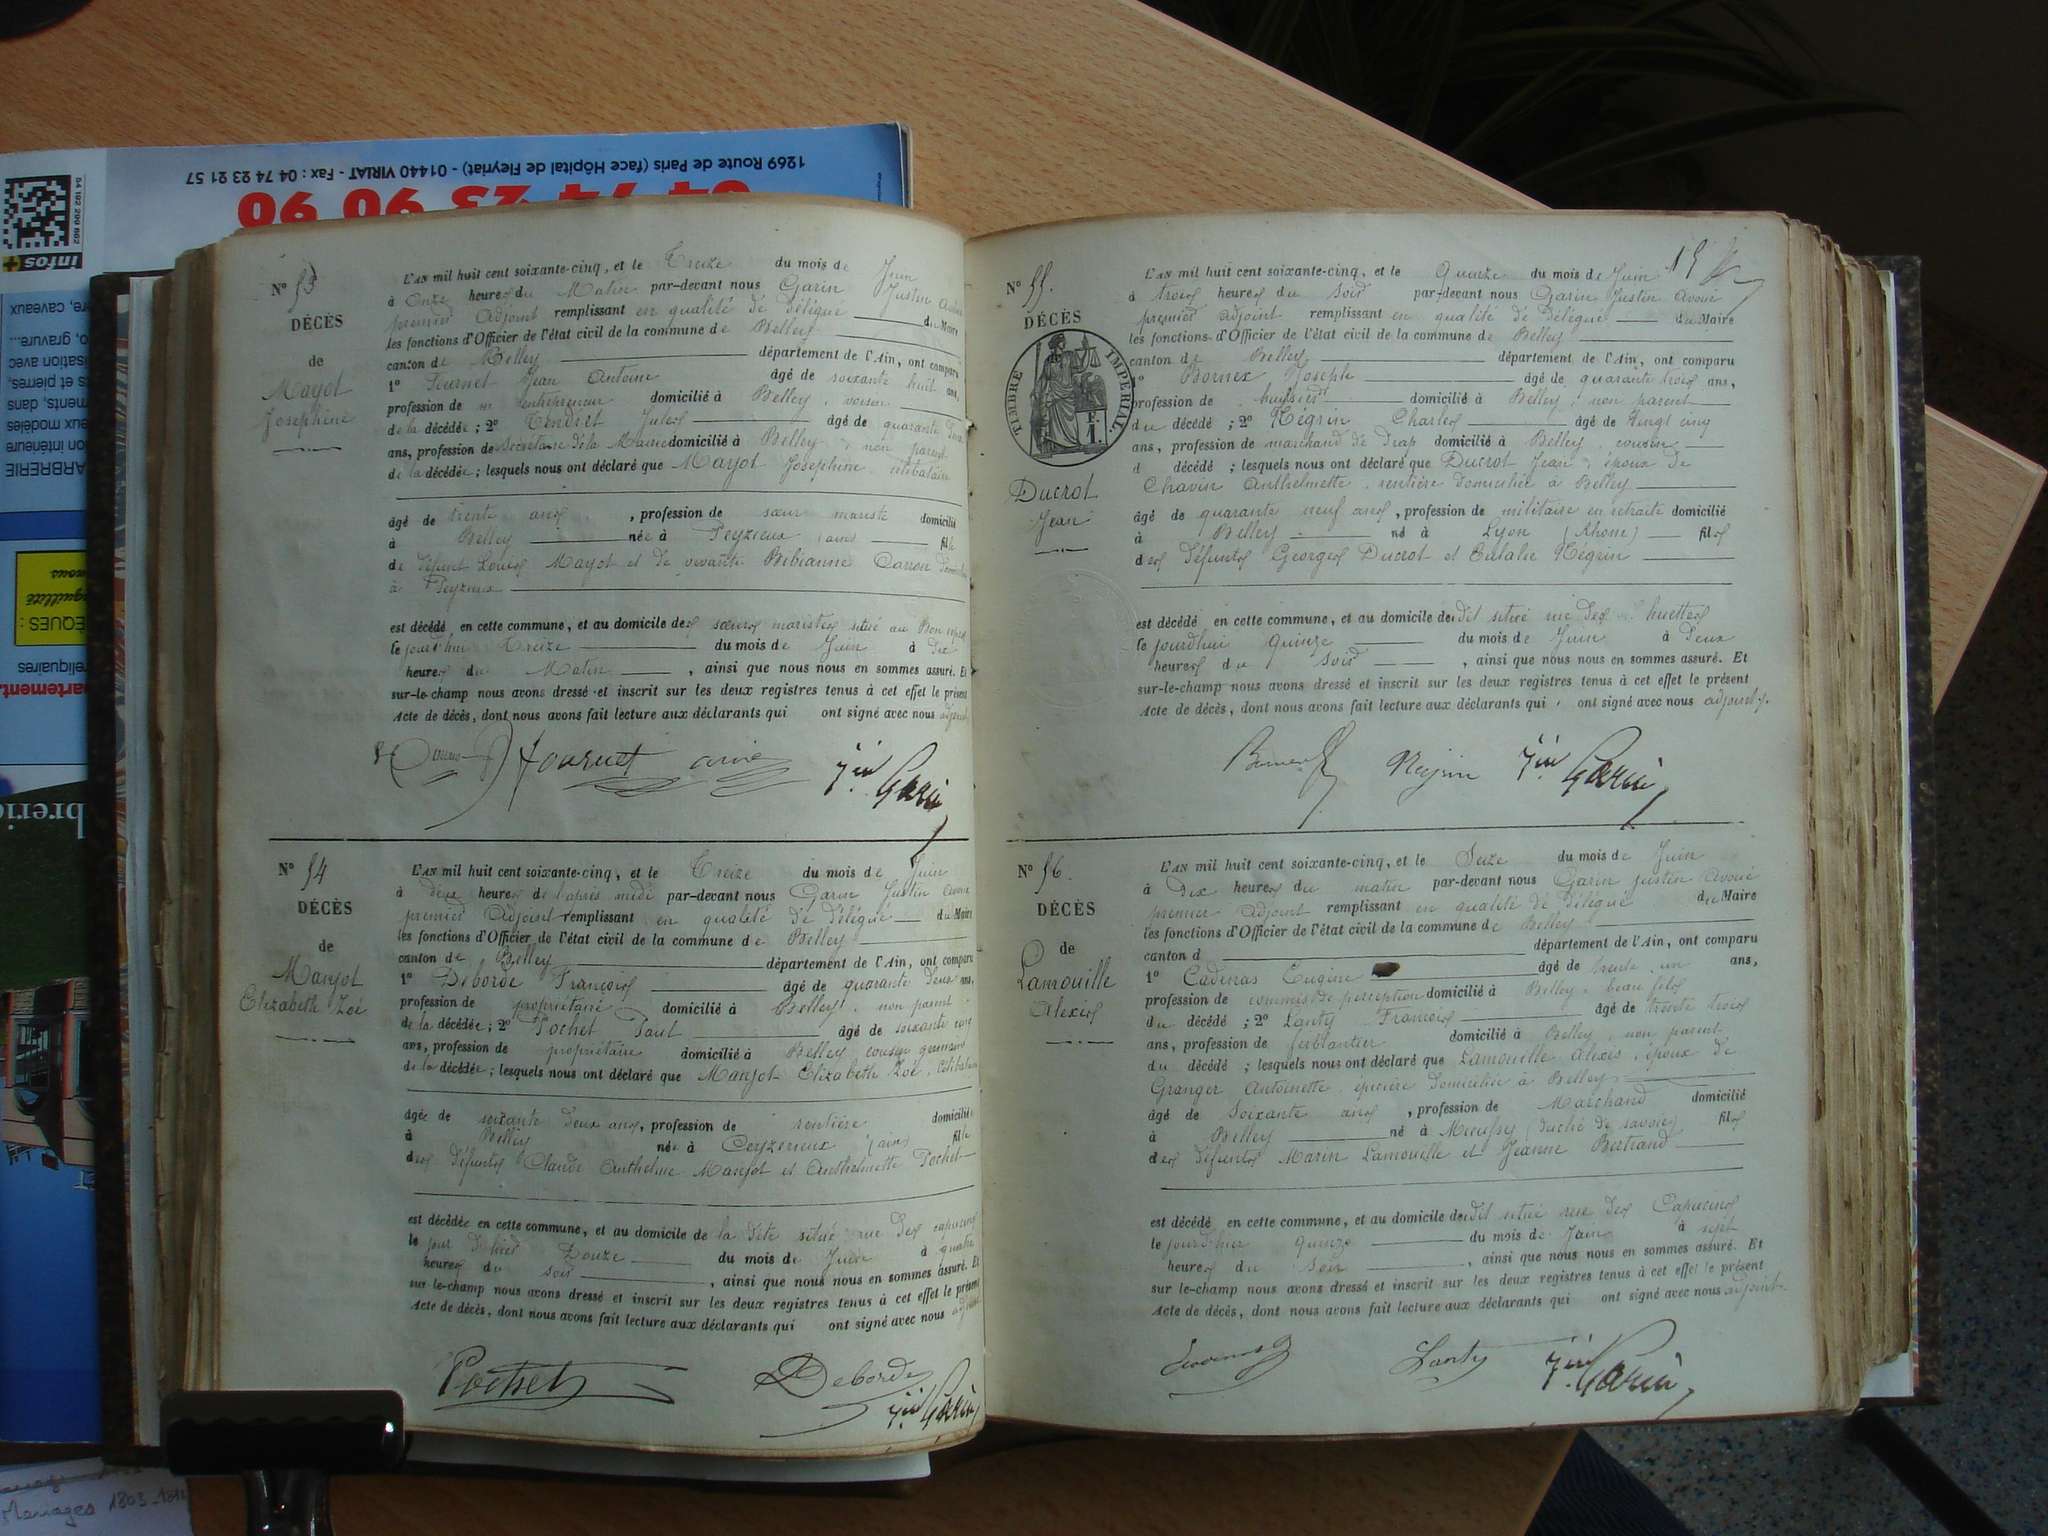 1269 Route de Paris (face Hôpital de Fleyriat) - 01440 VIRIAT - Fax : 04 74 23 21 57
04 74 23 90 90
54 192 200 802
infos+
N° 53
DÉCÈS
de
Mayot
Josephine
L'AN mil huit cent soixante-cinq, et le Treize du mois de Juin
à Onze heures du Matin par-devant nous Garin Justin
premier Adjoint remplissant en qualité de Délégué du Maire
les fonctions d'Officier de l'état civil de la commune de Belley
canton de Belley département de l'Ain, ont comparu
1° Tournet Jean Antoine âgé de soixante huit ans,
profession de entrepreneur domicilié à Belley, voisin
de la décédée ; 2° Tendret Jules âgé de quarante deux
ans, profession de Secrétaire de la Mairie domicilié à Belley, non parent
de la décédée ; lesquels nous ont déclaré que Mayot Josephine célibataire
âgé de trente ans, profession de sœur mariste domicilié
à Belley née à Peyzieux (ain) fille
de défunt Louis Mayot et de vivante Bibianne Carron
à Peyzieux
est décédé en cette commune, et au domicile des sœurs maristes situé au Bon repos
le jourd'hui Treize du mois de Juin à Dix
heures du Matin, ainsi que nous nous en sommes assuré. Et
sur-le-champ nous avons dressé et inscrit sur les deux registres tenus à cet effet le présent
Acte de décès, dont nous avons fait lecture aux déclarants qui ont signé avec nous adjoint
Tournet ainé Jin Garin
N° 54
DÉCÈS
de
Manjot
Elizabeth Zoé
L'AN mil huit cent soixante-cinq, et le Treize du mois de Juin
à deux heures de l'après midi par-devant nous Garin Justin Avoué
premier Adjoint remplissant en qualité de Délégué du Maire
les fonctions d'Officier de l'état civil de la commune de Belley
canton de Belley département de l'Ain, ont comparu
1° Deborde François âgé de quarante deux ans,
profession de propriétaire domicilié à Belley, non parent
de la décédée ; 2° Pochet Paul âgé de soixante cinq
ans, profession de propriétaire domicilié à Belley cousin germain
de la décédée ; lesquels nous ont déclaré que Manjot Elizabeth Zoé, célibataire
âgée de soixante deux ans, profession de rentière domicilié
à Belley née à Ceyzerieux (ain) fille
des défunts Claude Anthelme Manjot et Anthelmette Pochet
est décédée en cette commune, et au domicile de la dite situé rue des capucins
le jour d'hier Douze du mois de Juin à quatre
heures du soir, ainsi que nous nous en sommes assuré. Et
sur-le-champ nous avons dressé et inscrit sur les deux registres tenus à cet effet le présent
Acte de décès, dont nous avons fait lecture aux déclarants qui ont signé avec nous adjoint
Pochet Deborde
Jin Garin
15
N° 55.
DÉCÈS
de
TIMBRE IMPERIAL
F.
1.
Ducrot
Jean
L'AN mil huit cent soixante-cinq, et le Quinze du mois de Juin
à trois heures du soir par-devant nous Garin Justin Avoué
premier adjoint remplissant en qualité de Délégué du Maire
les fonctions d'Officier de l'état civil de la commune de Belley
canton de Belley département de l'Ain, ont comparu
1° Bornex Joseph âgé de quarante trois ans,
profession de huissier domicilié à Belley, non parent
du décédé ; 2° Négrin Charles âgé de vingt cinq
ans, profession de marchand de drap domicilié à Belley, cousin
d décédé ; lesquels nous ont déclaré que Ducrot Jean, époux de
Chavin Anthelmette, rentière domiciliée à Belley
âgé de quarante neuf ans, profession de militaire en retraite domicilié
à Belley né à Lyon (Rhône) fils
des défunts Georges Ducrot et Eulalie Négrin
est décédé en cette commune, et au domicile du dit situé rue des huettes
le jourdhui quinze du mois de Juin à Deux
heures du soir, ainsi que nous nous en sommes assuré. Et
sur-le-champ nous avons dressé et inscrit sur les deux registres tenus à cet effet le présent
Acte de décès, dont nous avons fait lecture aux déclarants qui ont signé avec nous adjoint
Négrin Jin Garin
N° 56.
DÉCÈS
de
Lamouille
Alexis
L'AN mil huit cent soixante-cinq, et le Seize du mois de Juin
à Dix heures du matin par-devant nous Garin Justin Avoué
premier Adjoint remplissant en qualité de délégué du Maire
les fonctions d'Officier de l'état civil de la commune de Belley
canton d département de l'Ain, ont comparu
1° Cadinas Eugène âgé de trente un ans,
profession de commis de perception domicilié à Belley, beau fils
du décédé ; 2° Lanty François âgé de trente trois
ans, profession de ferblantier domicilié à Belley, non parent
du décédé ; lesquels nous ont déclaré que Lamouille Alexis, époux de
Granger Antoinette, épicière domiciliée à Belley
âgé de Soixante ans, profession de Marchand domicilié
à Belley né à (duché de savoie) fils
des défunts Marin Lamouille et Jeanne Bertrand
est décédé en cette commune, et au domicile du dit situé rue des Capucins
le jourd'hier quinze du mois de Juin à sept
heures du soir, ainsi que nous nous en sommes assuré. Et
sur-le-champ nous avons dressé et inscrit sur les deux registres tenus à cet effet le présent
Acte de décès, dont nous avons fait lecture aux déclarants qui ont signé avec nous adjoint.
Lanty Jin Garin
Mariages 1803-1812